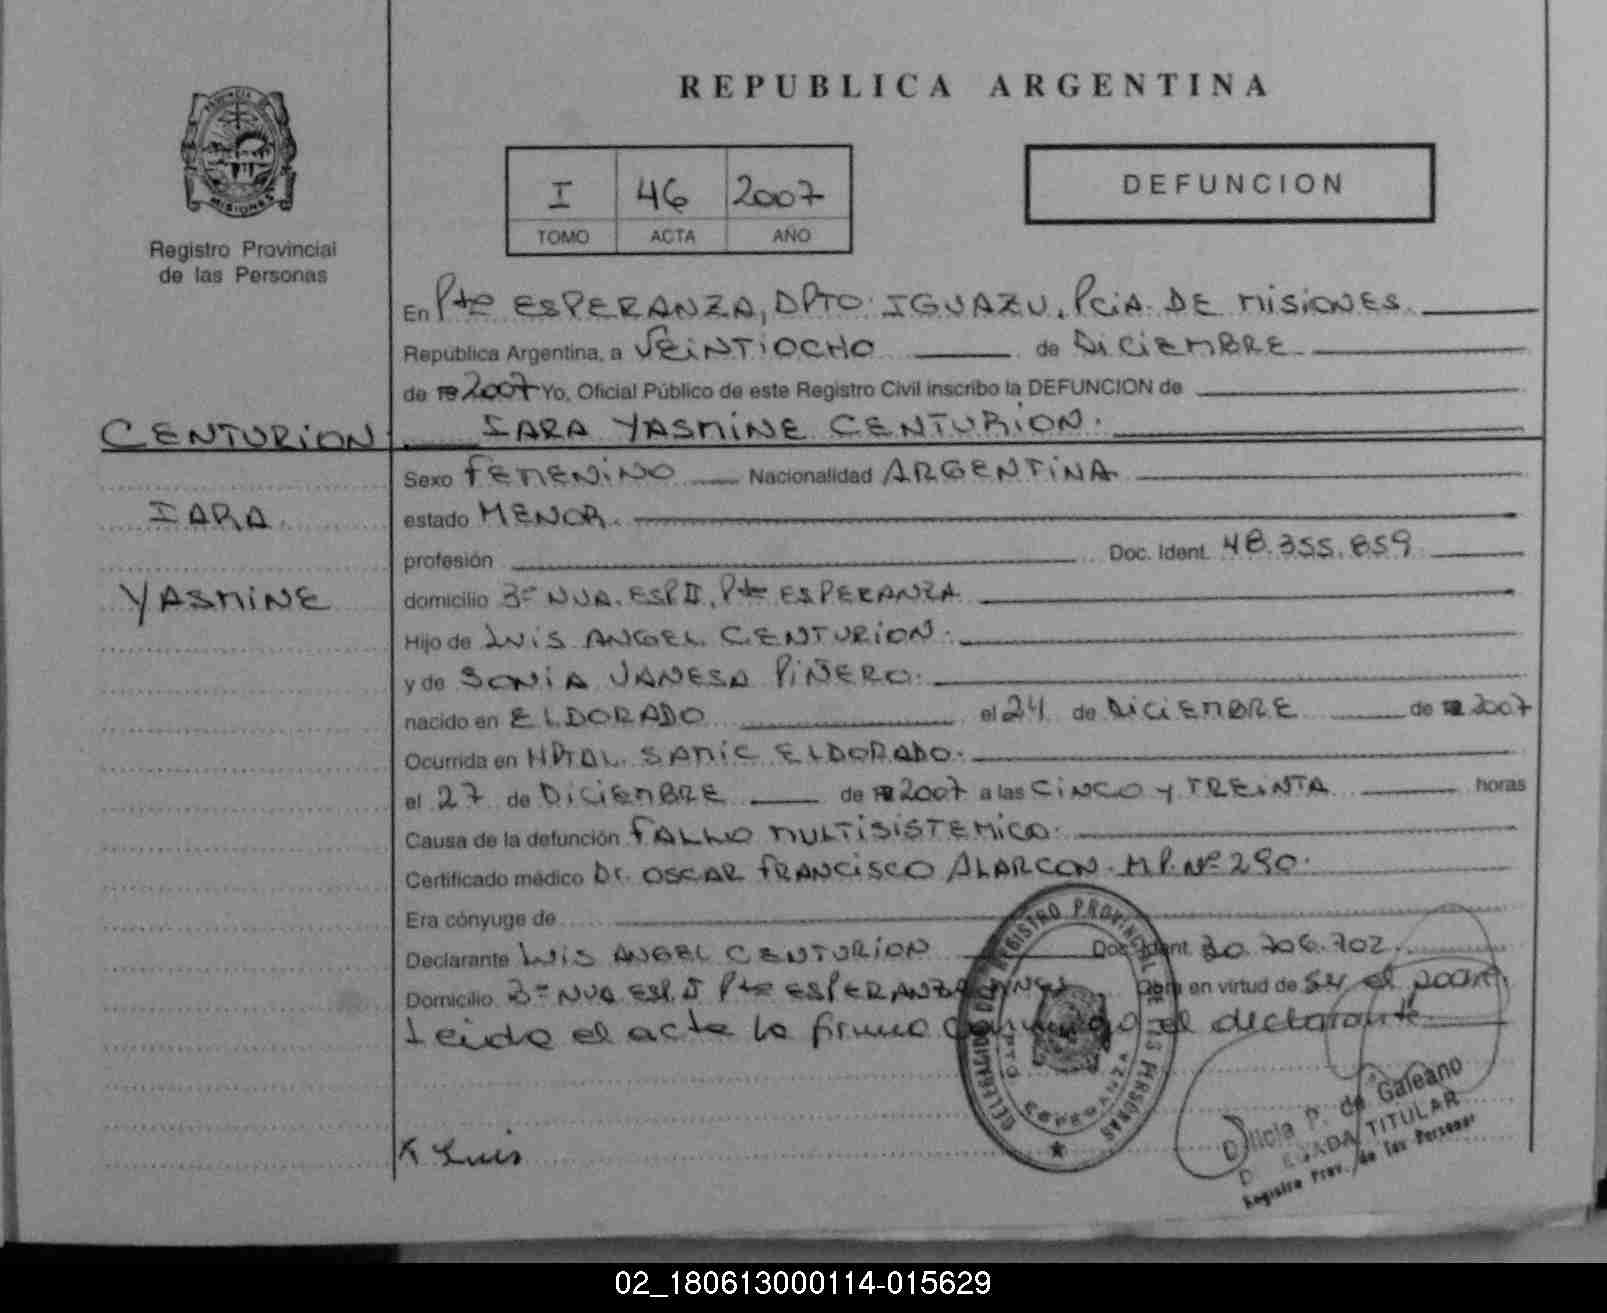 REPUBLICA ARGENTINA
I 46 2007
TOMO ACTA AÑO
DEFUNCION
PROVINCIA DE
MISIONES
Registro Provincial
de las Personas
CENTURION
IARA
YASMINE
En Pto ESPERANZA, DPTO. IGUAZU, PCIA. DE MISIONES
República Argentina, a VEINTIOCHO de DICIEMBRE
de 19 2007 Yo, Oficial Público de este Registro Civil inscribo la DEFUNCION de
IARA YASMINE CENTURION.
Sexo FEMENINO Nacionalidad ARGENTINA
estado MENOR.
profesión Doc. Ident. 48.355.859
domicilio 3= NVA. ESP II, Pto ESPERANZA
Hijo de LUIS ANGEL CENTURION.
y de SONIA VANESA PIÑERO.
nacido en ELDORADO el 24 de DICIEMBRE de 19 2007
Ocurrida en HPTAL. SAMIC ELDORADO.
el 27 de DICIEMBRE de 19 2007 a las CINCO Y TREINTA horas
Causa de la defunción FALLO MULTISISTEMICO.
Certificado médico Dr. OSCAR FRANCISCO ALARCON. M.P. Nº 290.
Era cónyuge de
Declarante LUIS ANGEL CENTURION Doc. Ident. 30.706.702
Domicilio 3= NVA ESP. II Pto ESPERANZA MNES Obra en virtud de ser el padre.
Leida el acta la firma conmigo el declarante
DELEGACION DEL REGISTRO PROVINCIAL DE LAS PERSONAS
PTO ESPERANZA
x Luis
P. de Galeano
TITULAR
Registro Prov. de las Personas
02_180613000114-015629